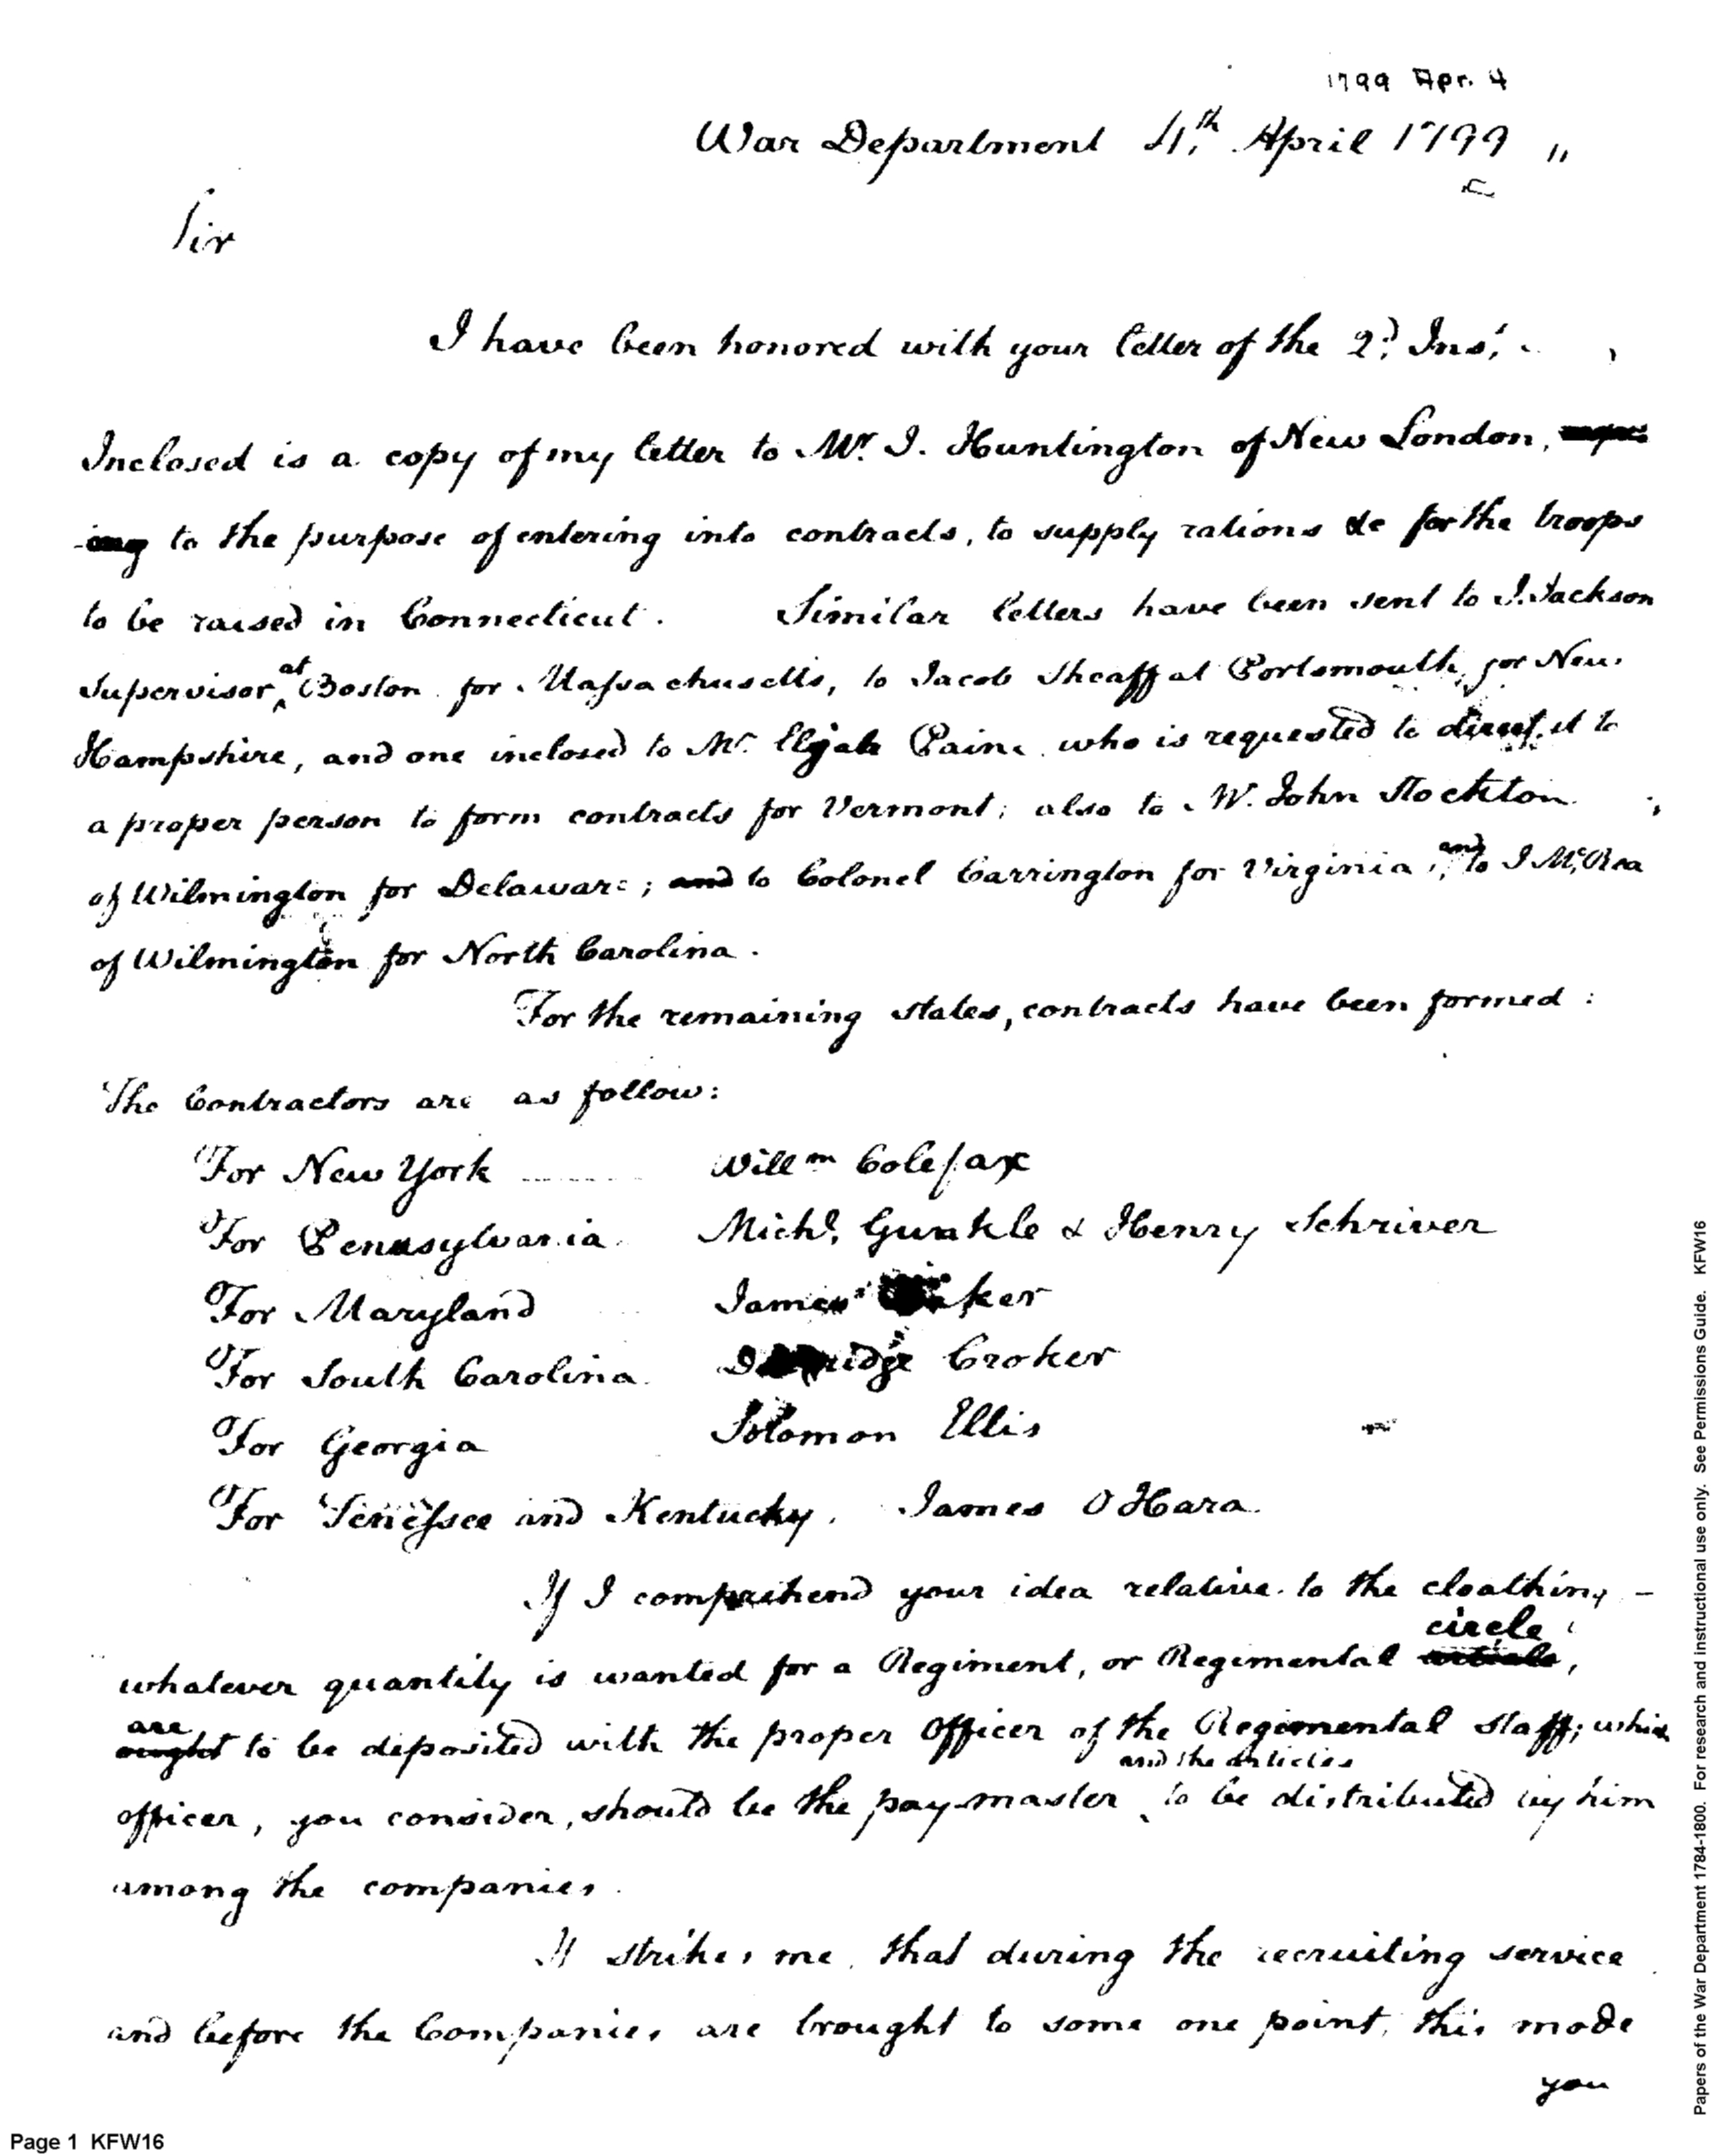 1799 Apr. 4
War Department 4th. April 1799 "
Sir
I have been honored with your letter of the 2d. Inst.
Inclosed is a copy of my letter to Mr. J. Huntington of New London,
to the purpose of entering into contracts, to supply rations &c for the troops
to be raised in Connecticut. Similar letters have been sent to J. Jackson
Supervisor at Boston for Massachusetts, to Jacob Sheaff at Portsmouth, for New
Hampshire, and one inclosed to Mr. Elijah Paine who is requested to direct it to
a proper person to form contracts for Vermont; also to Mr. John Stockton
of Wilmington for Delaware; and to Colonel Carrington for Virginia, and to J McRea
of Wilmington for North Carolina.
For the remaining states, contracts have been formed:
The Contractors are as follow:
For New York Willm Colefax
For Pennsylvania Michl. Gunkle & Henry Schriver
For Maryland James
For South Carolina Croker
For Georgia Solomon Ellis
For Tenessee and Kentucky. James OHara
If I comprehend your idea relative to the cloathing -
circle
whatever quantity is wanted for a Regiment, or Regimental article,
are
ought to be deposited with the proper Officer of the Regimental staff; which
and the articles
officer, you consider, should be the pay-master to be distributed by him
among the companies.
It strikes me, that during the recruiting service
and before the Companies are brought to some one point, this mode
you
Page 1 KFW16
Papers of the War Department 1784-1800. For research and instructional use only. See Permissions Guide. KFW16